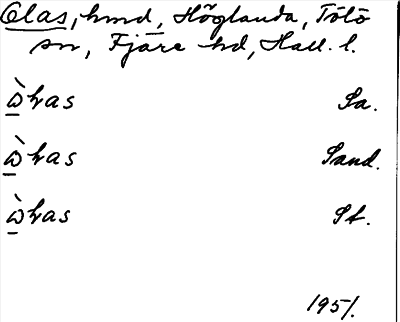 Olas, hmd, Höglanda, Tölö
sn, Fjäre hd, Hall. l.
ὼ̱las Sa.
ὼ̱las Sand.
ὼ̱las St.
1951.